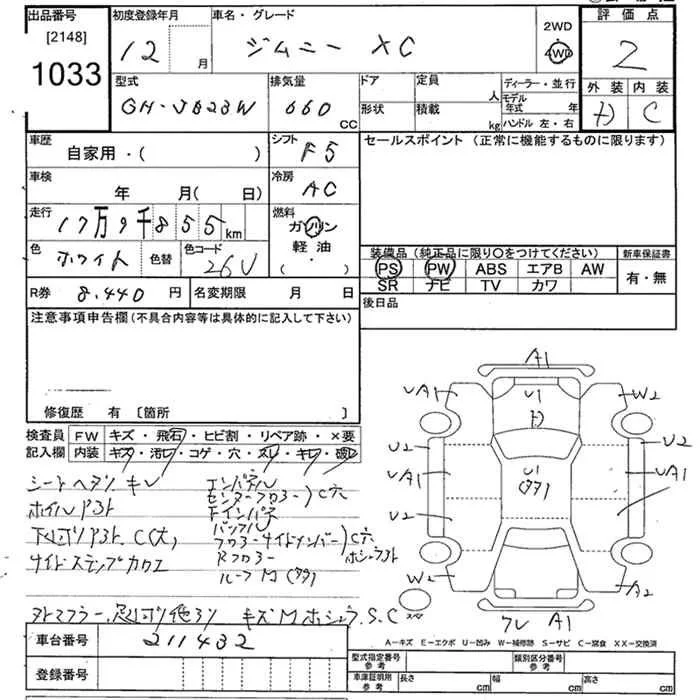 出品番号
[2148]
1033
初度登録年月
12 月
車名・グレード
ジムニー XC
2WD
4WD
評価点
2
外装 内装
D C
型式
GH-JB23W
排気量
660 CC
ドア
形状
定員 人
積載 kg
ディーラー・並行
モデル年式 年
ハンドル 左・右
車歴
自家用・( )
シフト
F5
セールスポイント (正常に機能するものに限ります)
車検
年 月( 日)
冷房
AC
走行
17万9千855km
燃料
ガソリン
軽油
・( )
色
ホワイト
色替
色コード
26U
装備品 (純正品に限り○をつけてください)
PS PW ABS エアB AW
SR ナビ TV カワ
新車保証書
有・無
R券 8,440 円
名変期限 月 日
後日品
注意事項申告欄 (不具合内容等は具体的に記入して下さい)
修復歴 有 [箇所 ]
検査員
記入欄
FW キズ・飛石・ヒビ割・リペア跡・×要
内装 キズ・汚レ・コゲ・穴・スレ・キレ・破レ
シートヘタリ キレ
ホイル
下
サイドステップカウエ
エンパネル
センターフロアー
C穴
Fインパネ
バックパネル
フロアーサイドメンバー
C穴
Rフロアー
ルーフM
キズM ホシュラ S.C
A1
UA1
U1
D
W2
U2
U2
UA1
U1
UA1
U2
W2
A2
A1
A―キズ E―エクボ U―凹み W―補修跡 S―サビ C―腐食 XX―交換済
車台番号
211432
登録番号
型式指定番号
参考
類別区分番号
参考
車庫証明用
参考
長さ cm
幅 cm
高さ cm